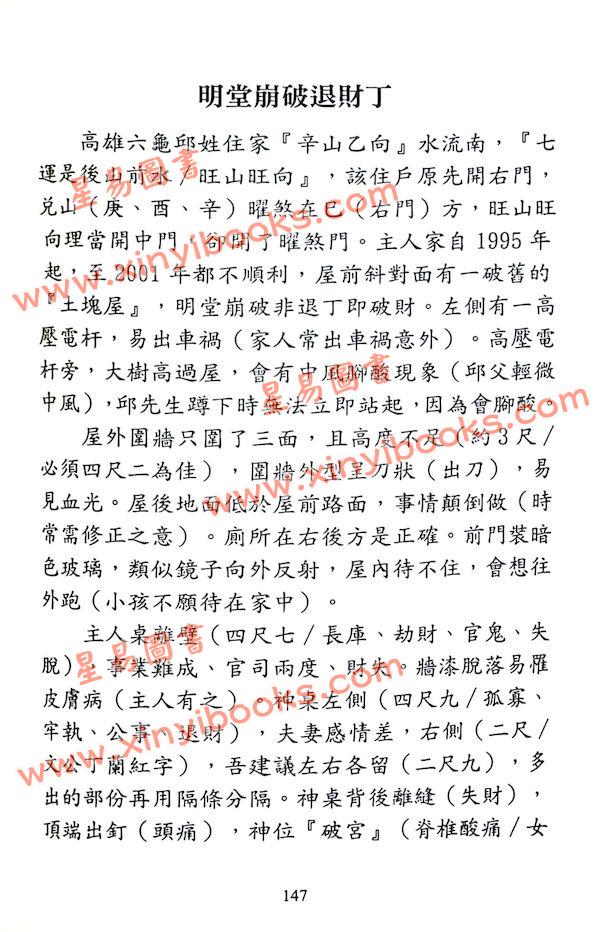 明堂崩破退財丁
高雄六龜邱姓住家『辛山乙向』水流南，『七
運是後山前水／旺山旺向』，該住戶原先開右門，
兌山（庚、酉、辛）曜煞在巳（右門）方，旺山旺
向理當開中門，卻開了曜煞門。主人家自1995年
起，至2001年都不順利，屋前斜對面有一破舊的
『土塊屋』，明堂崩破非退丁即破財。左側有一高
壓電杆，易出車禍（家人常出車禍意外）。高壓電
杆旁，大樹高過屋，會有中風腳酸現象（邱父輕微
中風），邱先生蹲下時無法立即站起，因為會腳酸。
屋外圍牆只圍了三面，且高度不足（約3尺／
必須四尺二為佳），圍牆外型呈刀狀（出刀），易
見血光。屋後地面低於屋前路面，事情顛倒做（時
常需修正之意）。廁所在右後方是正確。前門裝暗
色玻璃，類似鏡子向外反射，屋內待不住，會想往
外跑（小孩不願待在家中）。
主人桌離壁（四尺七／長庫、劫財、官鬼、失
脫），事業難成、官司兩度、財失。牆漆脫落易罹
皮膚病（主人有之）。神桌左側（四尺九／孤寡、
牢執、公事、退財），夫妻感情差，右側（二尺／
文公丁蘭紅字），吾建議左右各留（二尺九），多
出的部份再用隔條分隔。神桌背後離縫（失財），
頂端出釘（頭痛），神位『破宮』（脊椎酸痛／女
147
星易圖書
www.xinyibooks.com
星易圖書
www.xinyibooks.com
星易圖書
www.xinyibooks.com